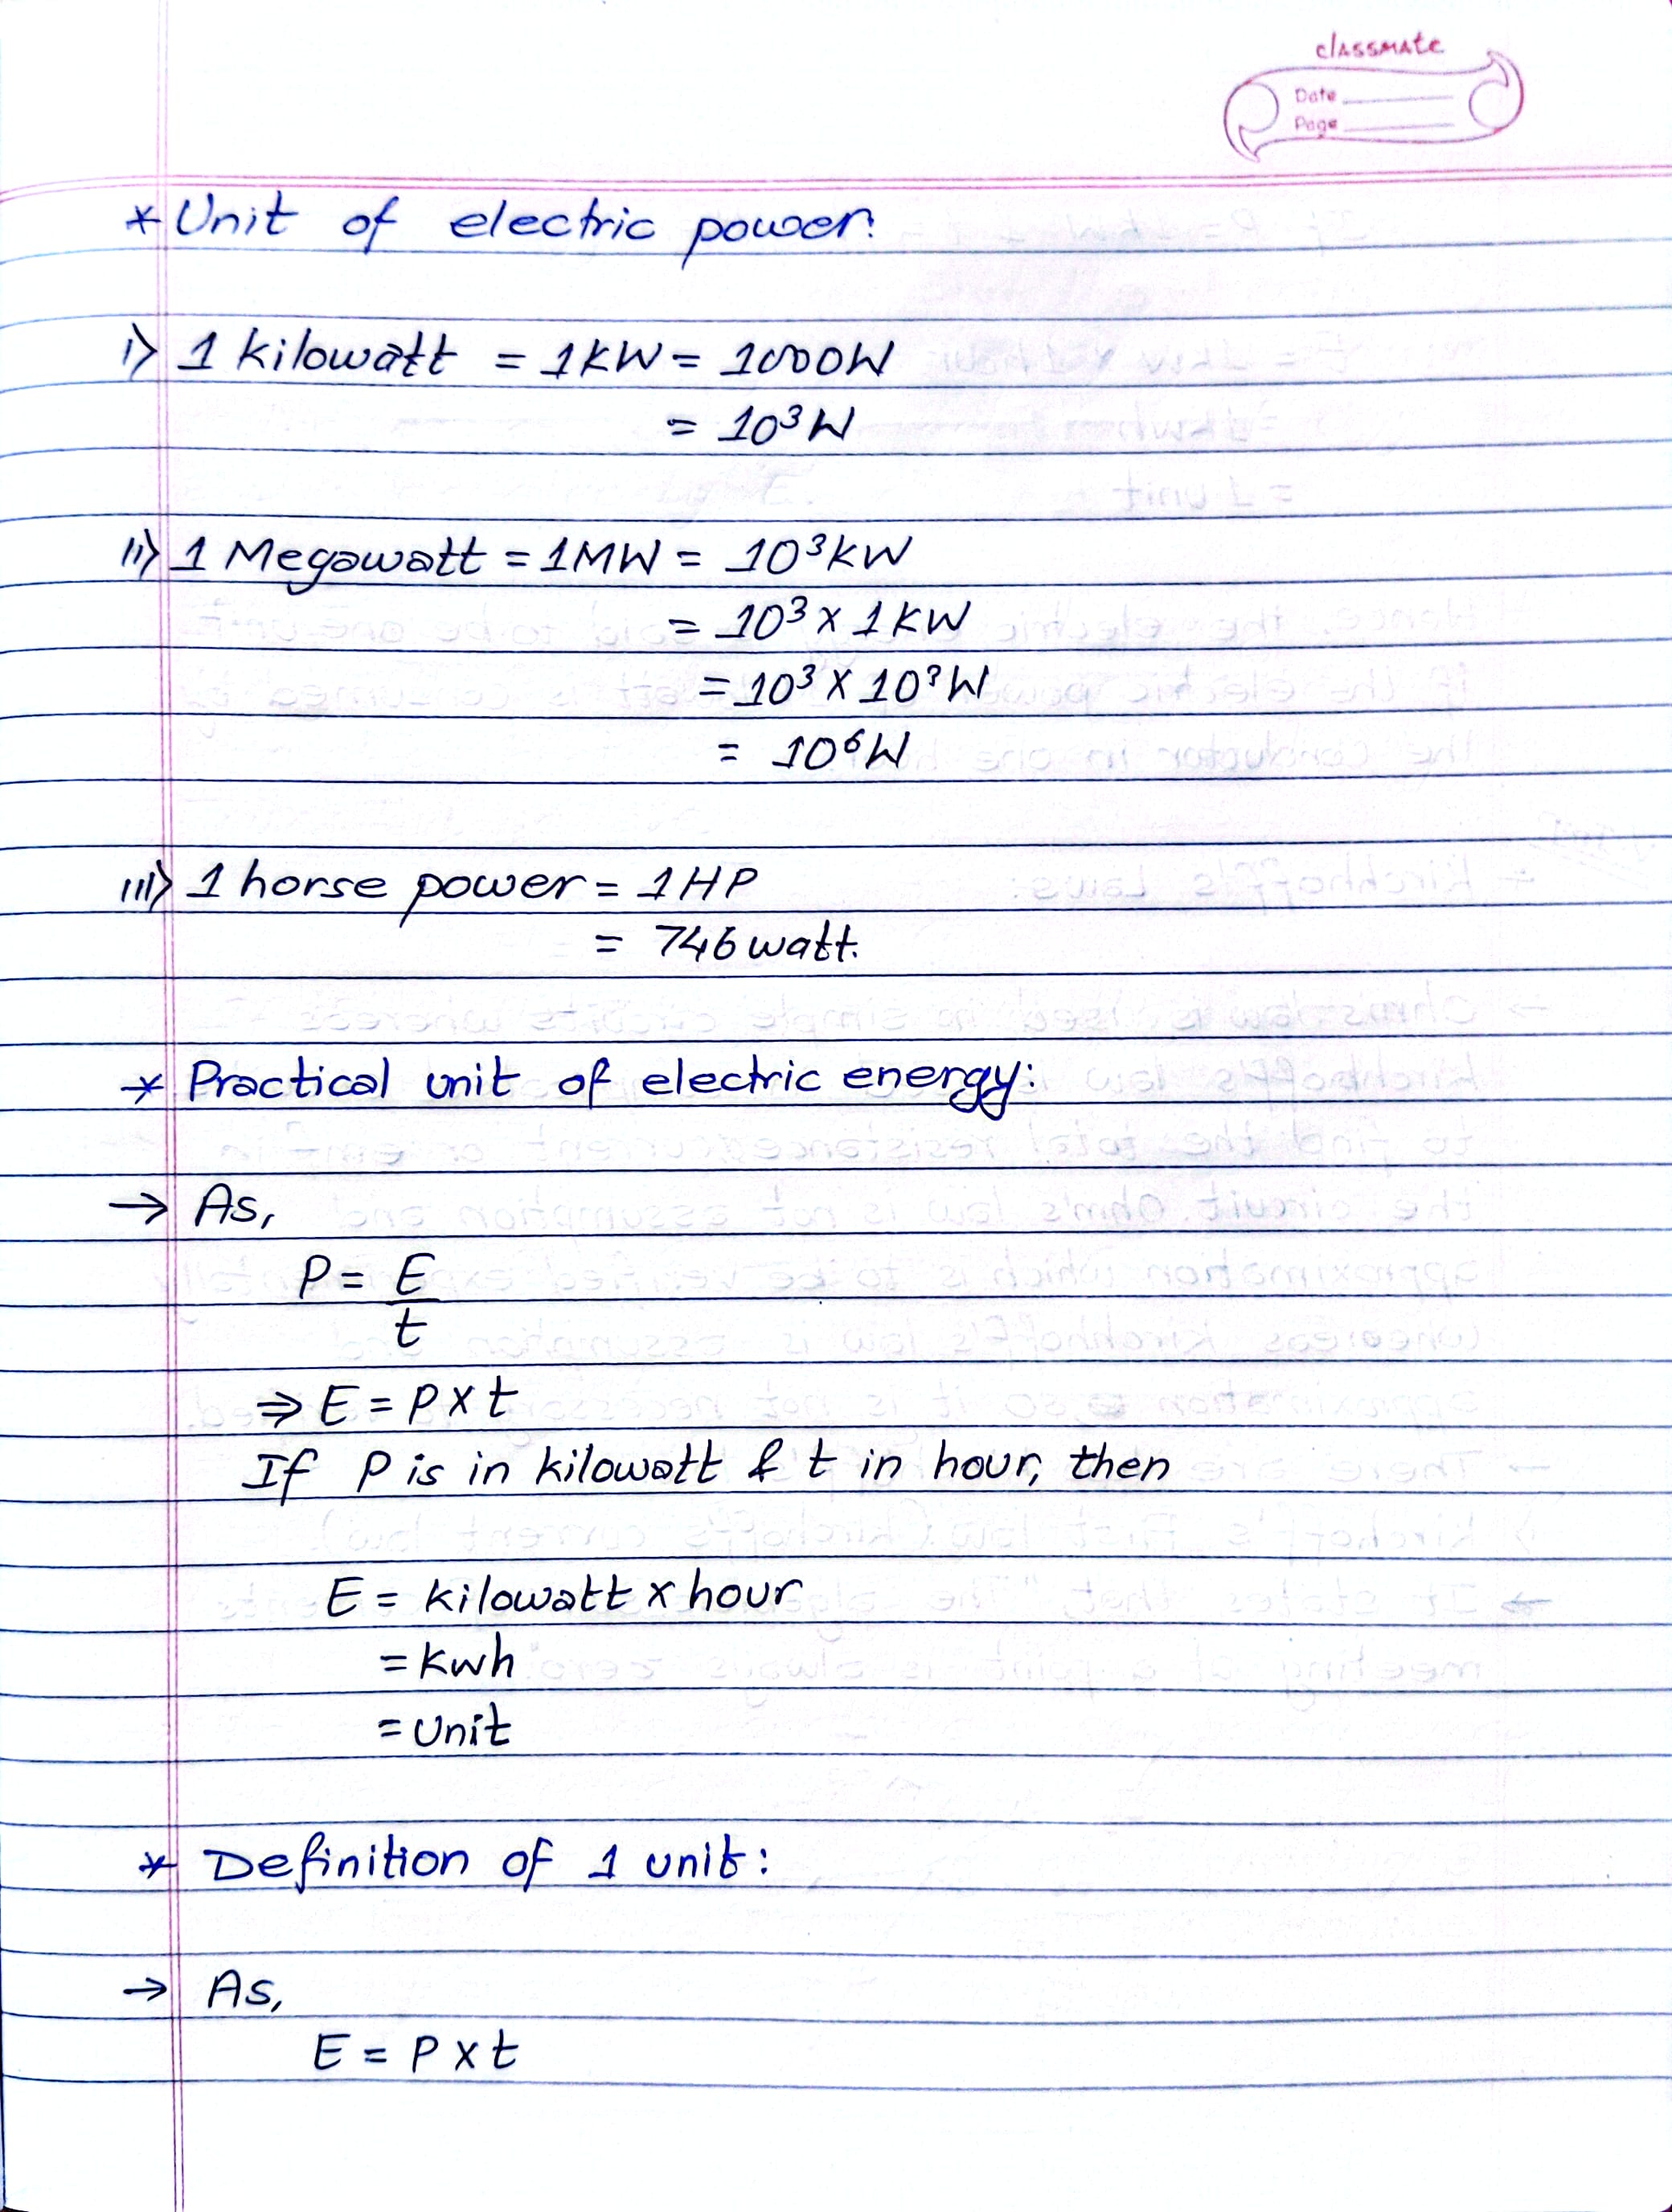 classmate
Date
Page
* Unit of electric power:
i) 1 kilowatt = 1KW = 1000W
= 10³W
ii) 1 Megawatt = 1MW = 10³KW
= 10³ x 1KW
= 10³ x 10³W
= 10⁶W
iii) 1 horse power = 1HP
= 746 watt.
* Practical unit of electric energy:
→ As,
P = E
t
⇒ E = P x t
If P is in kilowatt & t in hour, then
E = kilowatt x hour
= Kwh
= Unit
* Definition of 1 unit:
→ As,
E = P x t